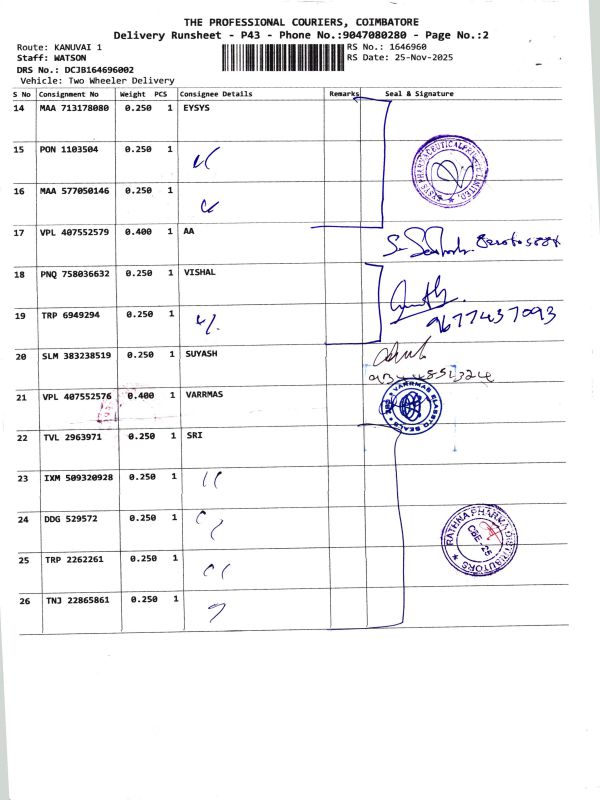 THE PROFESSIONAL COURIERS, COIMBATORE
Delivery Runsheet - P43 - Phone No.:9047080280 - Page No.:2
Route: KANUVAI 1
Staff: WATSON
DRS No.: DCJB164696002
Vehicle: Two Wheeler Delivery
RS No.: 1646960
RS Date: 25-Nov-2025
S No Consignment No Weight PCS Consignee Details Remarks Seal & Signature
14 MAA 713178080 0.250 1 EYSYS
15 PON 1103504 0.250 1 "
16 MAA 577050146 0.250 1 "
17 VPL 407552579 0.400 1 AA
18 PNQ 758036632 0.250 1 VISHAL
19 TRP 6949294 0.250 1 "
9677437093
20 SLM 383238519 0.250 1 SUYASH
21 VPL 407552576 0.400 1 VARRMAS
VARRMAS ELASSTO SEALS
22 TVL 2963971 0.250 1 SRI
23 IXM 509320928 0.250 1 "
24 DDG 529572 0.250 1 "
RATHNA PHARMA DISTRIBUTORS
CBE-25
25 TRP 2262261 0.250 1 "
26 TNJ 22865861 0.250 1 "